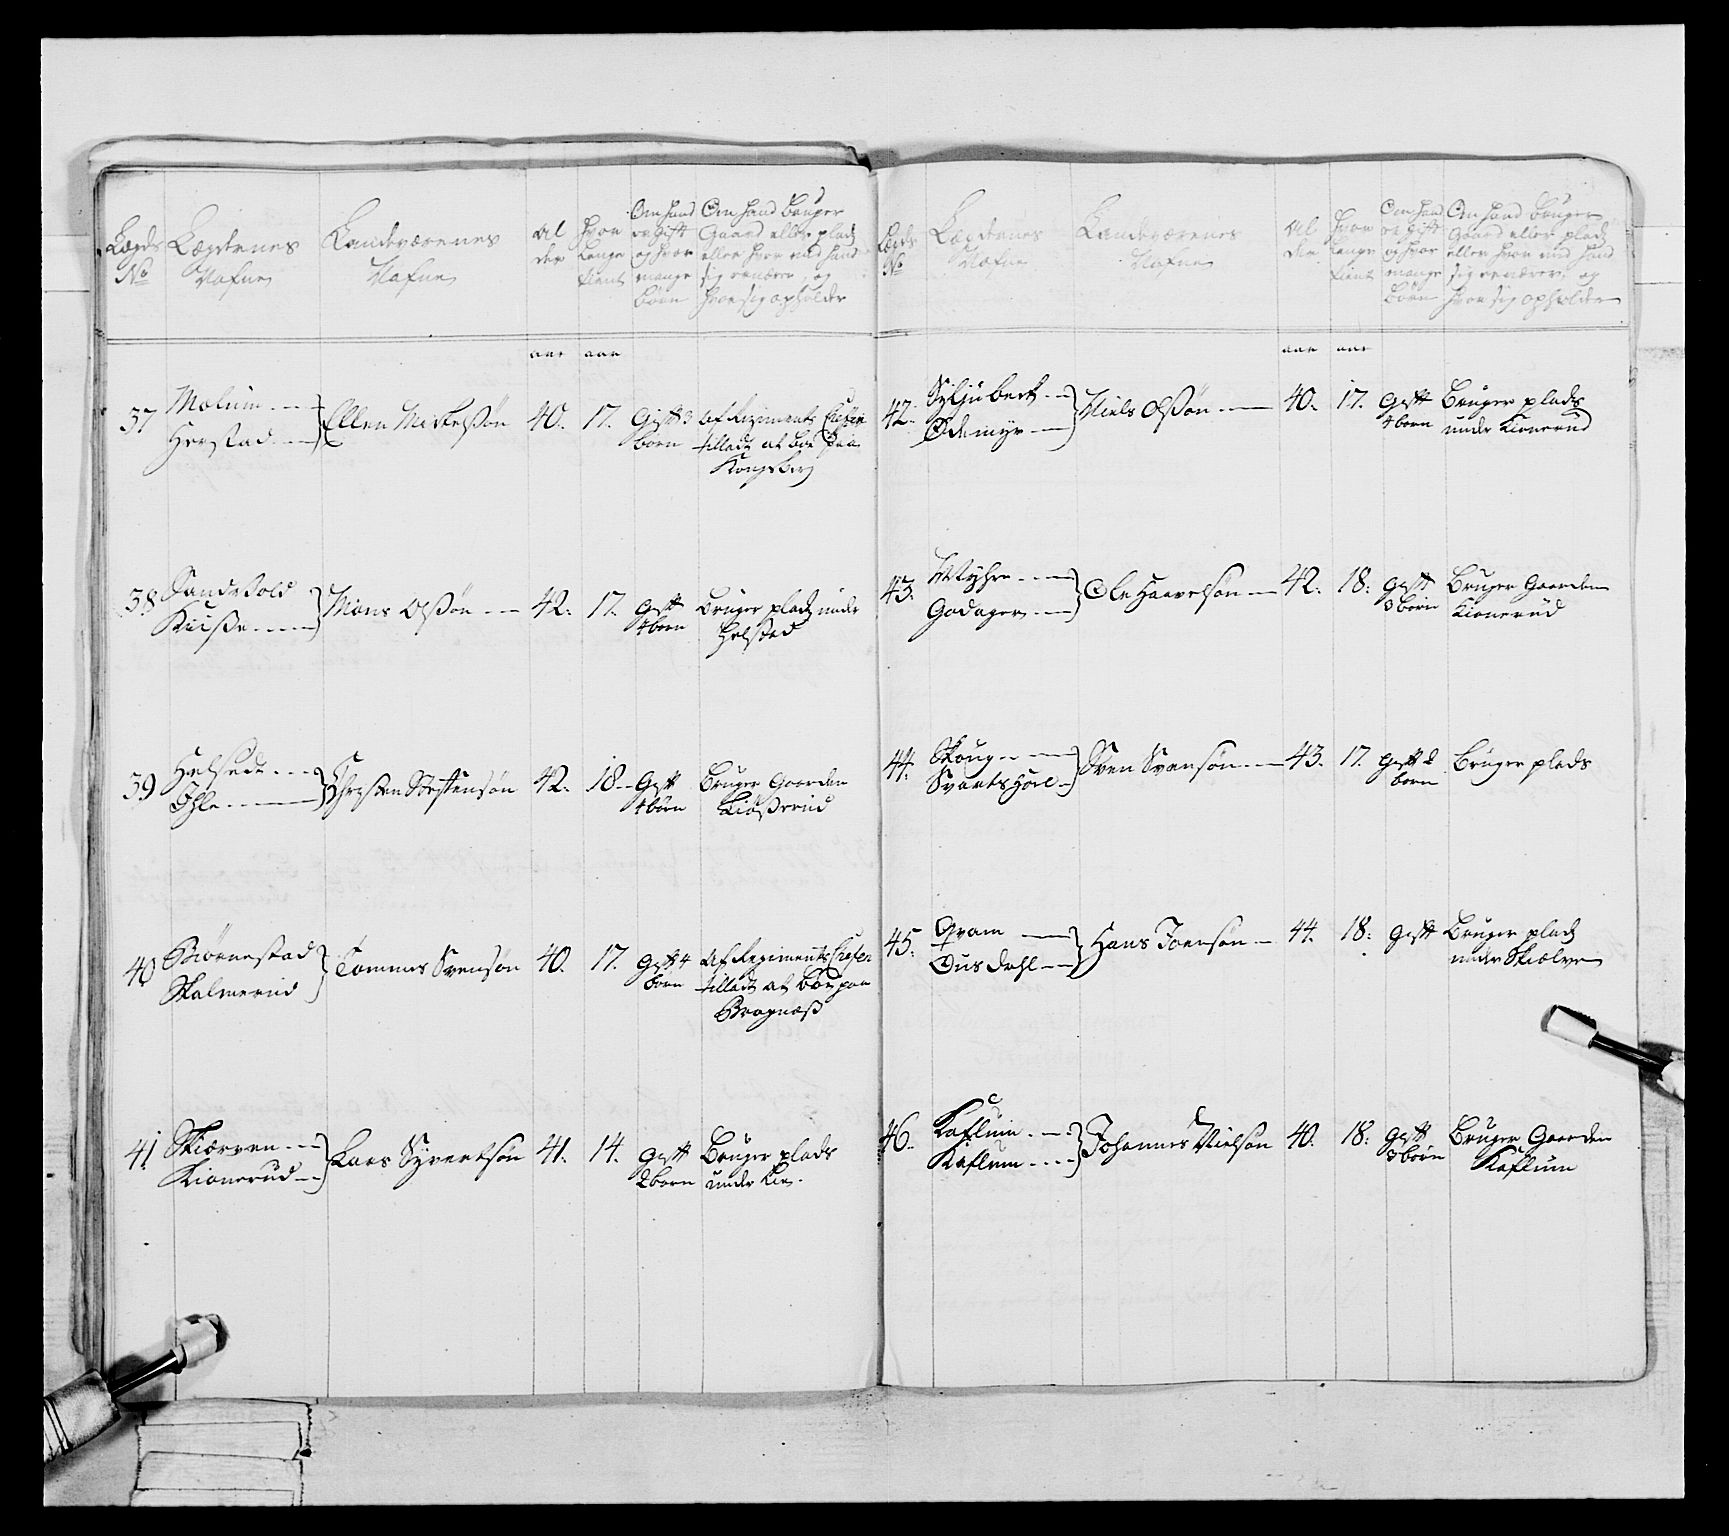 Lægds
No
Lægdenes
Nafne
Landeværenes
Nafne
Al
der
hvor
lenge
tient
Om hand
er gift
og hvor
mange
børn
Om hand bruger
Gaard eller plads
eller hvor med hand
sig ernærer, og
hvor sig opholder
aar aar
37
Molum
Herstad
Ellen Mickelsøn 40. 17. Gift 3
børn
Af Regiments Chefen
tilladt at boe paa
Kongsberg
38
Sandsvold
Kiisse
Mons Olssøn 42. 17. Gift
4 børn
Bruger plads under
Helstad
39
Helsedt
Ohle
Christen Torstensøn 42. 18. Gift
4 børn
Bruger Gaarden
Kiøsserud
40
Biørnestad
Skalmerud
Tommes Svensøn 40. 17. Gift 4
børn
Af Regiments Chefen
tilladt at boe paa
Bragnæss
41
Skiærven
Kionerud
Lars Syvertsøn 41. 14. Gift
2 børn
Bruger plads
under Lie
Lægds
No
Lægdenes
Nafne
Landeværenes
Nafne
Al
der
hvor
lenge
tient
Om hand
er gift
og hvor
mange
børn
Om hand bruger
Gaard eller plads
eller hvor med hand
sig ernærer, og
hvor sig opholder
aar aar
42.
Syljubert
Ødemyr
Niels Olssøn 40. 17. Gift
4 børn
Bruger plads
under Kionerud
43.
Myhre
Godager
Ole Haavelsøn 42. 18. Gift
3 børn
Bruger Gaarden
Kionerud
44.
Skoug
Svartshoel
Sven Svensøn 43. 17. Gift 2
børn
Bruger plads
45.
Qvam
Dusdahl
Hans Joensøn 44. 18. Gift
Bruger plads
under Skiælver
46.
Kaflum
Kaflum
Johannes Nielsøn 40. 18. Gift
3 børn
Bruger Gaarden
Kaflum